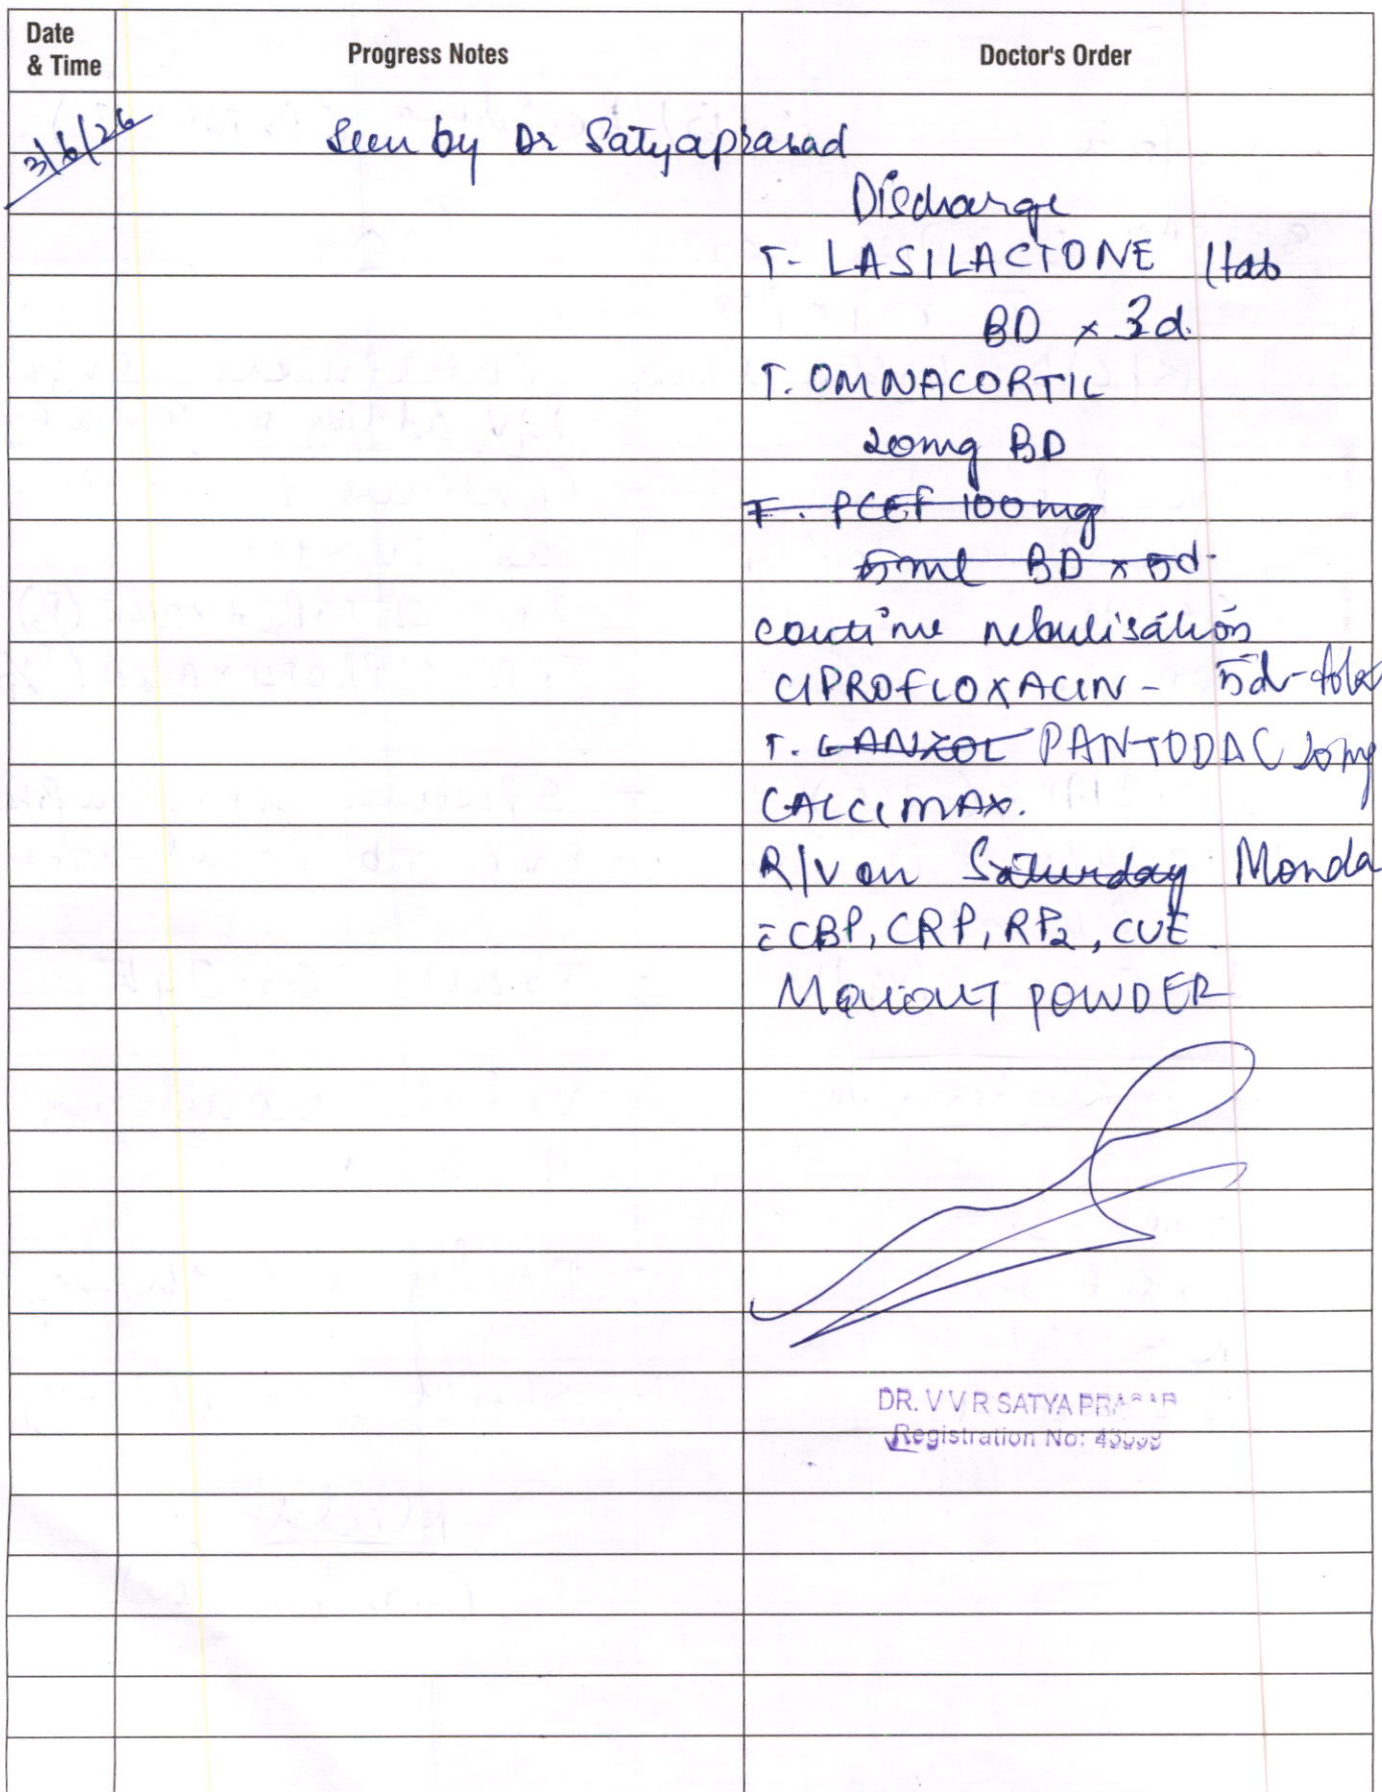 Date
& Time
Progress Notes
Doctor's Order
3/6/26
Seen by Dr Satyaprasad
Discharge
T- LASILACTONE 1tab
BD x 3d.
T. OMNACORTIL
20mg BD
T. PCEF 100mg
5ml BD x 5d.
continue nebulisation
CIPROFLOXACIN - 5d-
T. GANZOL PANTODAC 20mg
CALCIMAX.
R/V on Saturday Monda
c̄ CBP, CRP, RP2, CUE
POWDER
DR. V V R SATYA PRASAD
Registration No: